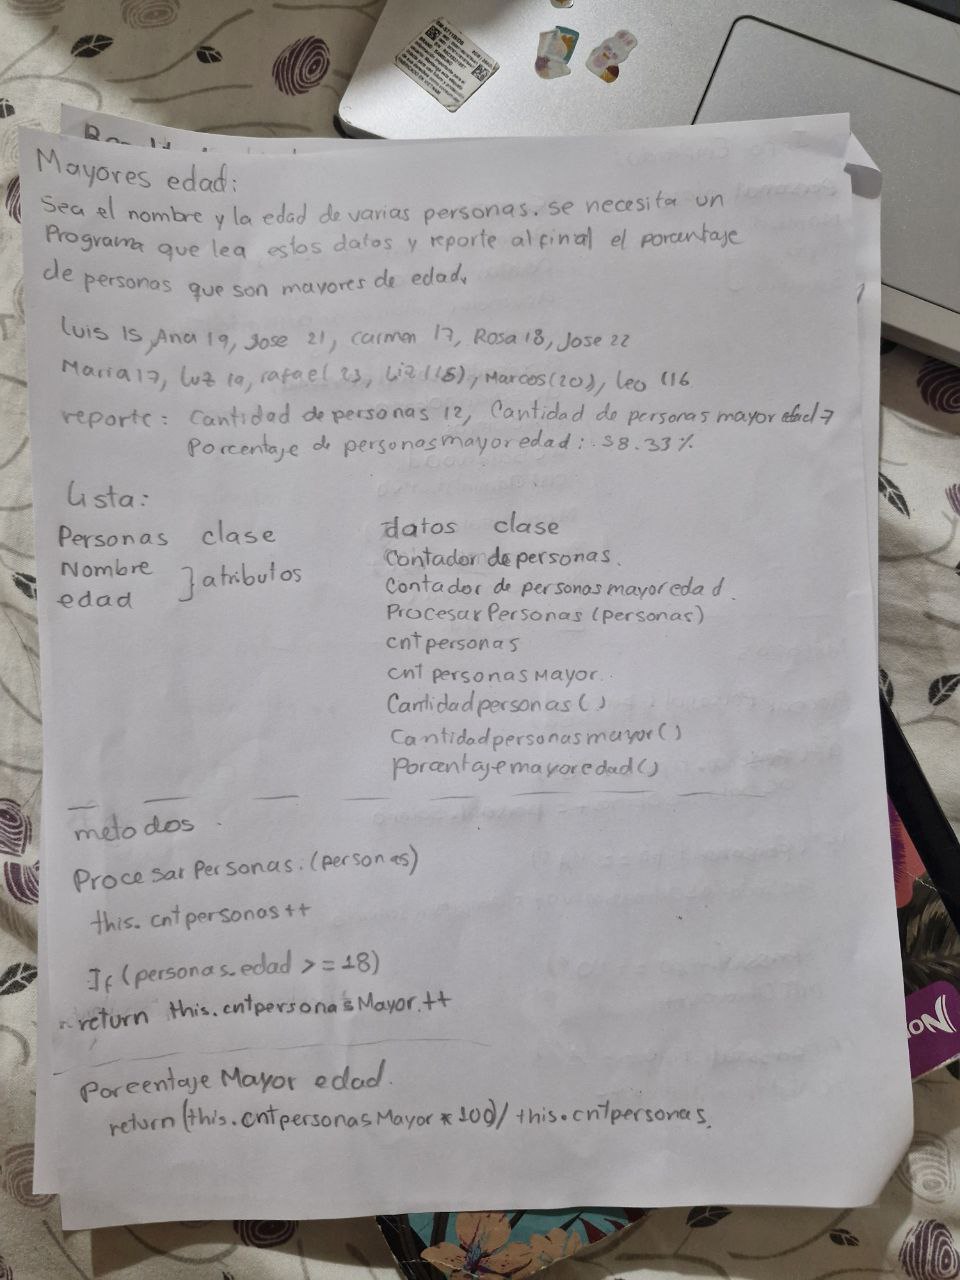 Mayores edad:
Sea el nombre y la edad de varias personas. se necesita un
Programa que lea estos datos y reporte al final el porcentaje
de personas que son mayores de edad.
Luis 15, Ana 19, Jose 21, Carmen 17, Rosa 18, Jose 22
Maria 17, Luz 19, rafael 23, Liz (15), Marcos (20), leo (16
reporte: Cantidad de personas 12, Cantidad de personas mayor edad 7
Porcentaje de personas mayor edad: 58.33%
Lista:
Personas clase
Nombre
edad
} atributos
datos clase
Contador de personas.
Contador de personas mayor edad.
Procesar Personas (personas)
cnt personas
cnt personas Mayor.
Cantidad personas ()
Cantidad personas mayor ()
Porcentaje mayor edad ()
metodos
Procesar Personas. (personas)
this. cntpersonas ++
If (personas.edad >= 18)
return this.cntpersonasMayor.++
Porcentaje Mayor edad.
return (this.cntpersonasMayor * 100) / this.cntpersonas.
No